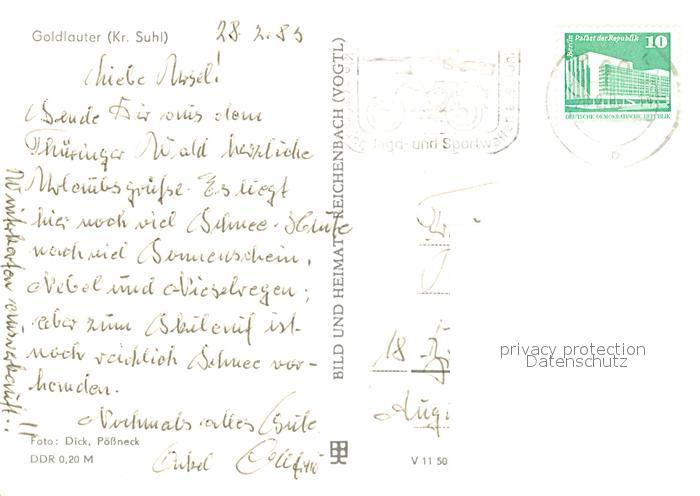 Goldlauter (Kr. Suhl)
28.2.83
Liebe Ursel!
Sende Dir aus dem
Thüringer Wald herzliche
Urlaubsgrüße. Es liegt
hier noch viel Schnee. Heute
nach viel Sonnenschein,
Nebel und Nieselregen;
aber zum Skilauf ist
noch reichlich Schnee vor-
handen.
Nochmals alles Gute
Onkel
Winterkarten ausverkauft!!
Foto: Dick, Pößneck
DDR 0,20 M
BILD UND HEIMAT REICHENBACH (VOGTL)
V 11 50
Jagd- und Sportwaffen
Berlin Palast der Republik
10
DEUTSCHE DEMOKRATISCHE REPUBLIK
18
privacy protection
Datenschutz